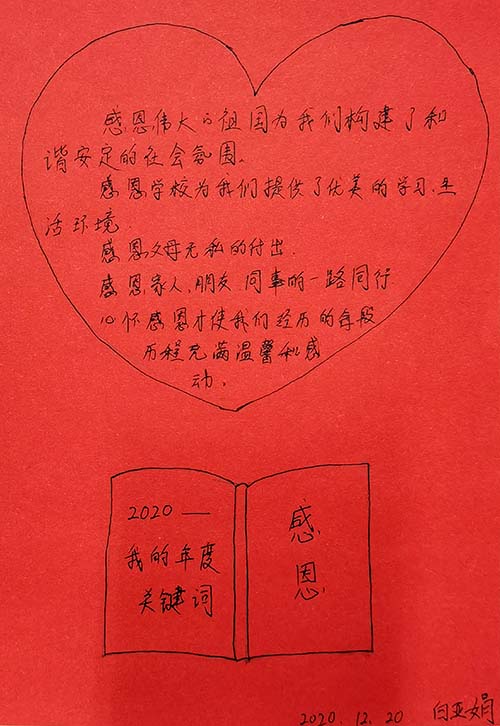 感恩伟大的祖国为我们构建了和
谐安定的社会氛围。
感恩学校为我们提供了优美的学习、生
活环境.
感恩父母无私的付出.
感恩家人、朋友、同事的一路同行.
心怀感恩才使我们经历的每段
历程充满温馨和感
动.
2020 —
我的年度
关键词
感
恩
2020.12.20 白亚娟